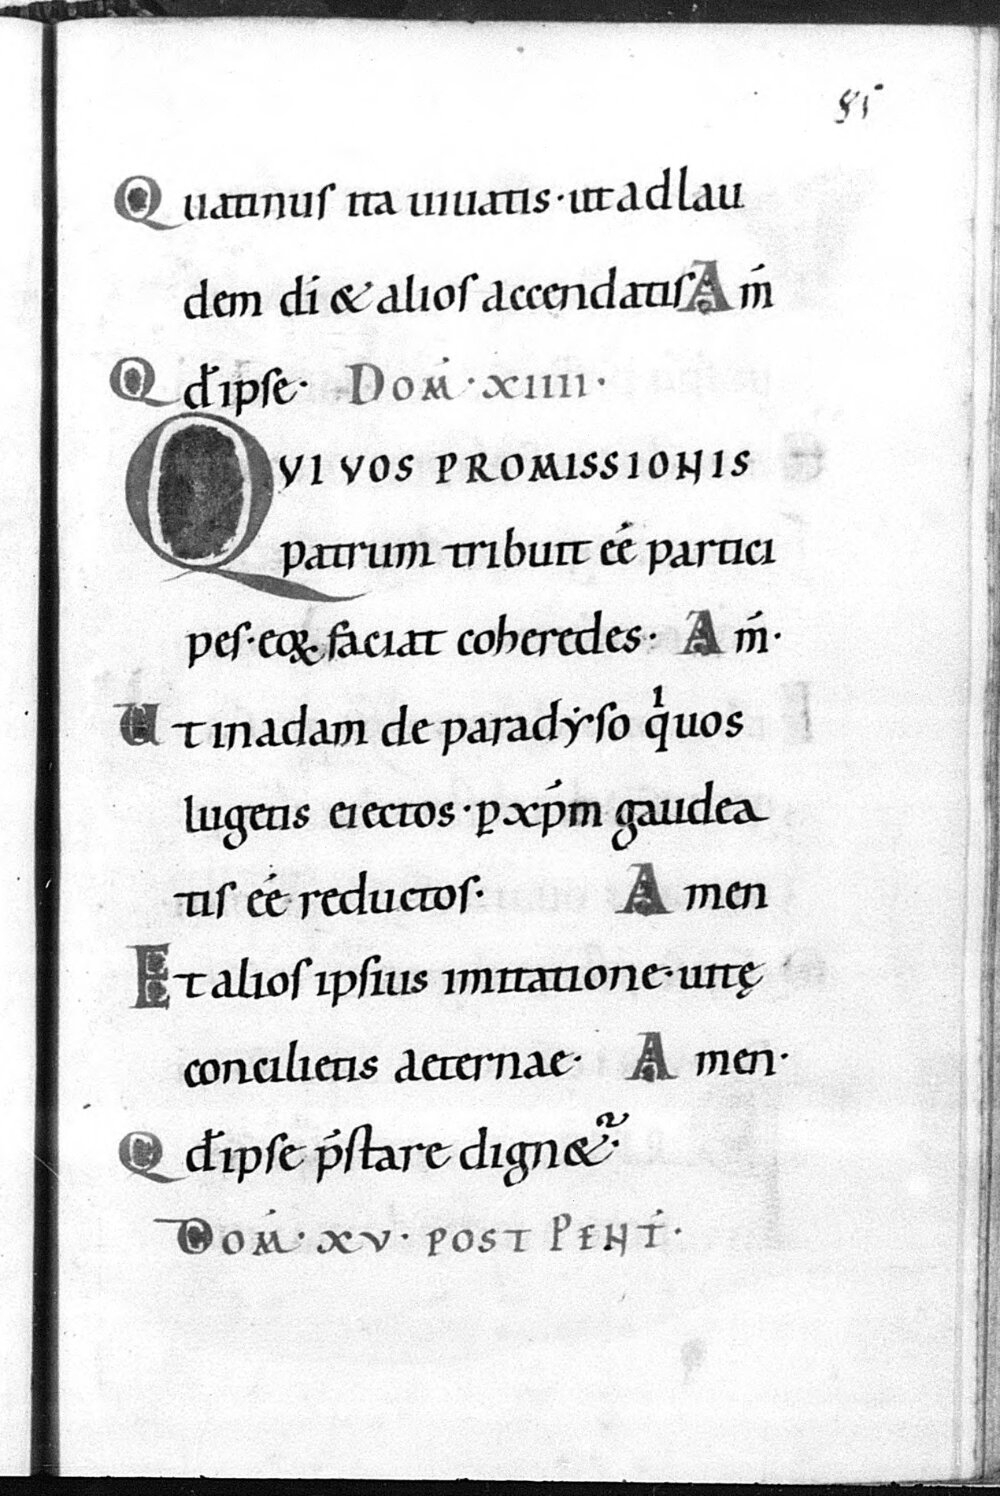 85
Quatinus ita uiuatis · ut ad lau
dem dī & alios accendatis Am̄
Qd̄ ipse · Dom̄ · xiiii ·
QVI VOS PROMISSIONIS
patrum tribuit eē partici
pes · eoq; faciat coheredes · Am̄ ·
Ut in adam de paradẏso qͥuos
lugetis eiectos · ꝑ xp̄m gaudea
tis eē reductos · Amen
Et alios ipsius imitatione · uitę
concilietis aeternae · Amen ·
Qd̄ ipse p̄stare dign&ᷣ ·
Dom̄ · xv · post Pent̄ ·